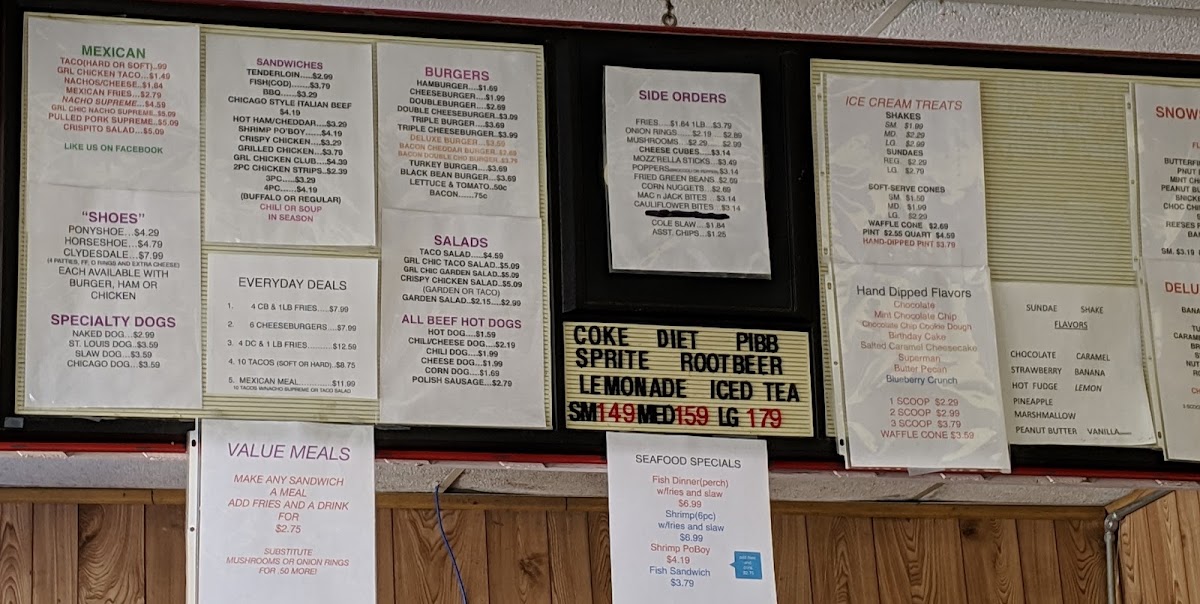 MEXICAN
TACO(HARD OR SOFT)..99
GRL CHICKEN TACO...$1.49
NACHOS/CHEESE..$1.84
MEXICAN FRIES...$2.79
NACHO SUPREME...$4.59
GRL CHIC NACHO SUPREME..$5.09
PULLED PORK SUPREME..$5.09
CRISPITO SALAD...$5.09
LIKE US ON FACEBOOK
"SHOES"
PONYSHOE...$4.29
HORSESHOE...$4.79
CLYDESDALE...$7.99
(4 PATTIES, FF, O RINGS AND EXTRA CHEESE)
EACH AVAILABLE WITH
BURGER, HAM OR
CHICKEN
SPECIALTY DOGS
NAKED DOG...$2.99
ST. LOUIS DOG..$3.59
SLAW DOG...$3.59
CHICAGO DOG...$3.59
SANDWICHES
TENDERLOIN.....$2.99
FISH(COD).......$3.79
BBQ......$3.29
CHICAGO STYLE ITALIAN BEEF
$4.19
HOT HAM/CHEDDAR....$3.29
SHRIMP PO'BOY......$4.19
CRISPY CHICKEN....$3.29
GRILLED CHICKEN...$3.79
GRL CHICKEN CLUB....$4.39
2PC CHICKEN STRIPS..$2.39
3PC.....$3.29
4PC.......$4.19
(BUFFALO OR REGULAR)
CHILI OR SOUP
IN SEASON
EVERYDAY DEALS
1. 4 CB & 1LB FRIES......$7.99
2. 6 CHEESEBURGERS....$7.99
3. 4 DC & 1 LB FRIES........$12.59
4. 10 TACOS (SOFT OR HARD)..$8.75
5. MEXICAN MEAL............$11.99
10 TACOS W/NACHO SUPREME OR TACO SALAD
BURGERS
HAMBURGER....$1.69
CHEESEBURGER....$1.99
DOUBLEBURGER....$2.69
DOUBLE CHEESEBURGER..$3.09
TRIPLE BURGER....$3.69
TRIPLE CHEESEBURGER..$3.99
DELUXE BURGER...$3.59
BACON CHEDDAR BURGER..
BACON DOUBLE CHD BURGER..$3.79
TURKEY BURGER....$3.69
BLACK BEAN BURGER...$3.69
LETTUCE & TOMATO..50c
BACON......75c
SALADS
TACO SALAD.....$4.59
GRL CHIC TACO SALAD..$5.09
GRL CHIC GARDEN SALAD..$5.09
CRISPY CHICKEN SALAD..$5.09
(GARDEN OR TACO)
GARDEN SALAD...$2.15......$2.99
ALL BEEF HOT DOGS
HOT DOG...$1.59
CHILI/CHEESE DOG....$2.19
CHILI DOG....$1.99
CHEESE DOG...$1.99
CORN DOG....$1.69
POLISH SAUSAGE...$2.79
SIDE ORDERS
FRIES......$1.84 1LB..$3.79
ONION RINGS......$2.19 ....$2.89
MUSHROOMS ...$2.29 ......$2.99
CHEESE CUBES.....$3.14
MOZZ'RELLA STICKS...$3.49
POPPERS $3.14
FRIED GREEN BEANS..$2.69
CORN NUGGETS...$2.69
MAC n JACK BITES ...$3.14
CAULIFLOWER BITES ...$3.14
COLE SLAW....$1.84
ASST. CHIPS...$1.25
COKE DIET PIBB
SPRITE ROOTBEER
LEMONADE ICED TEA
SM149 MED159 LG 179
ICE CREAM TREATS
SHAKES
SM. $1.99
MD. $2.29
LG. $2.99
SUNDAES
REG. $2.29
LG. $2.79
SOFT-SERVE CONES
SM. $1.50
MD. $1.99
LG. $2.29
WAFFLE CONE $2.69
PINT $2.55 QUART $4.59
HAND-DIPPED PINT $3.79
Hand Dipped Flavors
Chocolate
Mint Chocolate Chip
Chocolate Chip Cookie Dough
Birthday Cake
Salted Caramel Cheesecake
Superman
Butter Pecan
Blueberry Crunch
1 SCOOP $2.29
2 SCOOP $2.99
3 SCOOP $3.79
WAFFLE CONE $3.59
SUNDAE SHAKE
FLAVORS
CHOCOLATE CARAMEL
STRAWBERRY BANANA
HOT FUDGE LEMON
PINEAPPLE
MARSHMALLOW
PEANUT BUTTER VANILLA
SNOWS
FL
BUTTERFI
PNUT B
MINT CHI
PEANUT BU
SNICKE
CHOC CHIP
REESES P
BAN
SM. $3.19
DELU
BANA
TU
CARAM
BR
VALUE MEALS
MAKE ANY SANDWICH
A MEAL
ADD FRIES AND A DRINK
FOR
$2.75
SUBSTITUTE
MUSHROOMS OR ONION RINGS
FOR .50 MORE!
SEAFOOD SPECIALS
Fish Dinner(perch)
w/fries and slaw
$6.99
Shrimp(6pc)
w/fries and slaw
$6.99
Shrimp PoBoy
$4.19
Fish Sandwich
$3.79